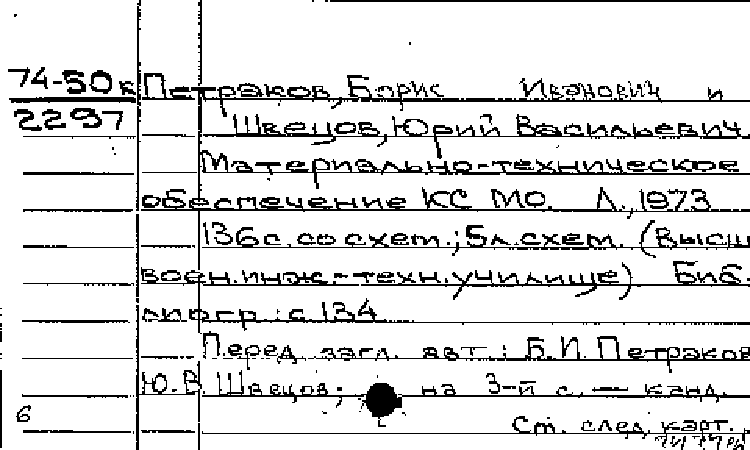 74-50к Петраков, Борис Иванович и
2297 Швецов, Юрий Васильевич.
Материально-техническое
обеспечение КС МО. Л., 1973
136с. со схем.; 5л. схем. (Высш
воен. инж.-техн. училище) Биб.
лиогр.: с 134
Перед загл. авт.: Б.И. Петраков
Ю.В. Швецов; на 3-й с. — канд.
6 Ст. след. карт.